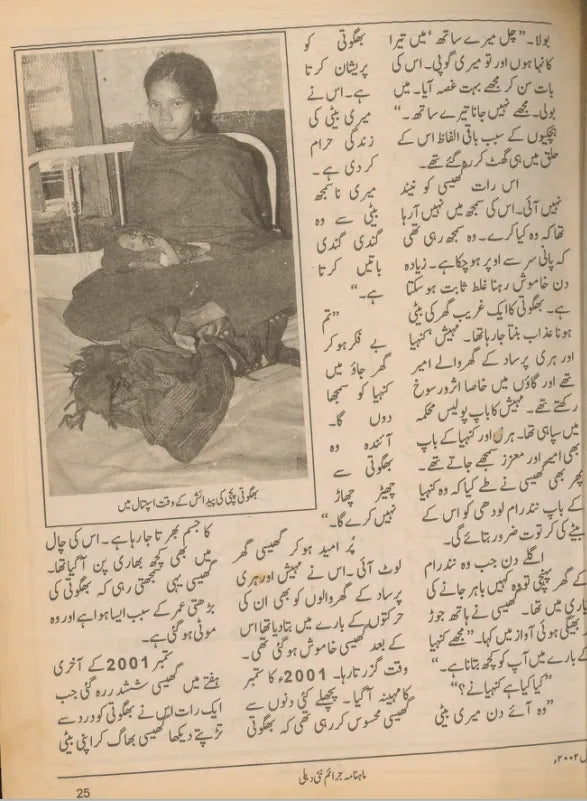 بولا۔ ”چل میرے ساتھ‘ میں تیرا
کانہا ہوں اور تو میری گوپی۔ اس کی
بات سن کر مجھے بہت غصہ آیا۔ میں
بولی۔ مجھے نہیں جانا تیرے ساتھ۔“
ہچکیوں کے سبب باقی الفاظ اس کے
حلق میں ہی گھٹ کر رہ گئے تھے۔
اس رات گھیسی کو نیند
نہیں آئی۔ اس کی سمجھ میں نہیں آرہا
تھا کہ وہ کیا کرے۔ وہ سمجھ رہی تھی
کہ پانی سر سے اوپر ہوچکا ہے۔ زیادہ
دن خاموش رہنا غلط ثابت ہو سکتا
ہے۔ بھگوتی کا ایک غریب گھر کی بیٹی
ہونا عذاب بنتا جارہا تھا۔ مہیش‘ کنہیا
اور ہری پرساد کے گھر والے امیر
تھے اور گاؤں میں خاصا اثر ورسوخ
رکھتے تھے۔ مہیش کا باپ پولیس محکمہ
میں سپاہی تھا۔ ہری اور کنہیا کے باپ
بھی امیر اور معزز سمجھے جاتے تھے۔
پھر بھی گھیسی نے طے کیا کہ وہ کنہیا
کے باپ نندرام لودھی کو اس کے
بیٹے کی کرتوت ضرور بتائے گی۔
اگلے دن جب وہ نندرام
کے گھر پہنچی تو وہ کہیں باہر جانے کی
تیاری میں تھا۔ گھیسی نے ہاتھ جوڑ
بھیگی ہوئی آواز میں کہا۔ ”مجھے کنہیا
کے بارے میں آپ کو کچھ بتانا ہے۔“
”کیا کیا ہے کنہیا نے؟“
”وہ آئے دن میری بیٹی
بھگوتی کو
پریشان کرتا
ہے۔ اس نے
میری بیٹی کی
زندگی حرام
کردی ہے۔
میری ناسمجھ
بیٹی سے وہ
گندی گندی
باتیں کرتا
ہے۔“
”تم
بے فکر ہو کر
گھر جاؤ میں
کنہیا کو سمجھا
دوں گا۔
آئندہ وہ
بھگوتی سے
چھیڑ چھاڑ
نہیں کرے گا۔“
پُر امید ہوکر گھیسی گھر
لوٹ آئی۔ اس نے مہیش اور ہری
پرساد کے گھر والوں کو بھی ان کی
حرکتوں کے بارے میں بتادیا تھا اس
کے بعد گھیسی خاموش ہوگئی تھی۔
وقت گزرتا رہا۔ 2001ء کا ستمبر
کا مہینہ آگیا۔ پچھلے کئی دنوں سے
گھیسی محسوس کررہی تھی کہ بھگوتی
بھگوتی بچی کی پیدائش کے وقت اسپتال میں
کا جسم بھرتا جارہا ہے۔ اس کی چال
میں بھی کچھ بھاری پن آگیا تھا۔
گھیسی یہی سمجھتی رہی کہ بھگوتی کی
بڑھتی عمر کے سبب ایسا ہوا ہے اور وہ
موٹی ہوگئی ہے۔
ستمبر 2001 کے آخری
ہفتے میں گھیسی ششدر رہ گئی جب
ایک رات اس نے بھگوتی کو درد سے
تڑپتے دیکھا گھیسی بھاگ کر اپنی بیٹی
۲۰۰۲ء
ماہنامہ جرائم نئی دہلی
25